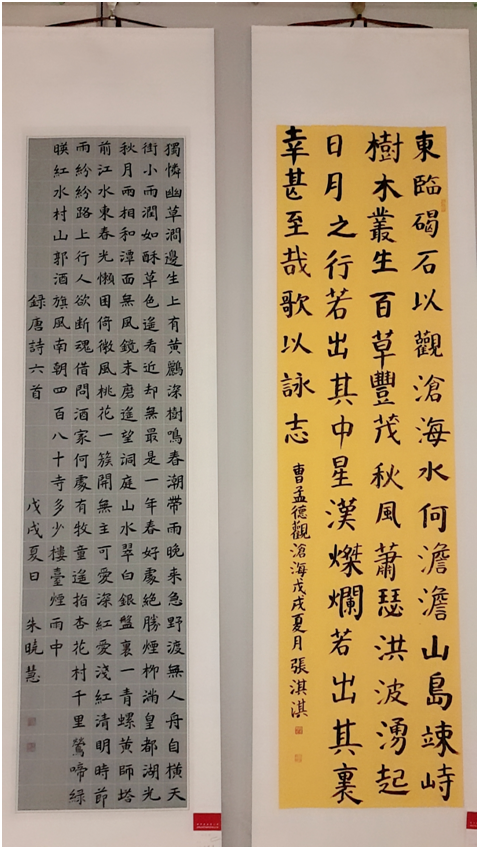 東臨碣石以觀滄海水何澹澹山島竦峙
樹木叢生百草豐茂秋風蕭瑟洪波湧起
日月之行若出其中星漢燦爛若出其裏
幸甚至哉歌以詠志
曹孟德觀滄海戊戌夏月張淇淇
獨憐幽草澗邊生上有黃鸝深樹鳴春潮帶雨晚来急野渡無人舟自橫天
街小雨潤如酥草色遙看近却無最是一年春好處絕勝煙柳滿皇都湖光
秋月雨相和潭面無風鏡未磨遙望洞庭山水翠白銀盤裏一青螺黃師塔
前江水東春光懶困倚微風桃花一簇開無主可愛深紅愛淺紅清明時節
雨紛紛路上行人欲斷魂借問酒家何處有牧童遙指杏花村千里鶯啼綠
暎紅水村山郭酒旗風南朝四百八十寺多少樓臺煙雨中
録唐詩六首 戊戌夏日 朱曉慧